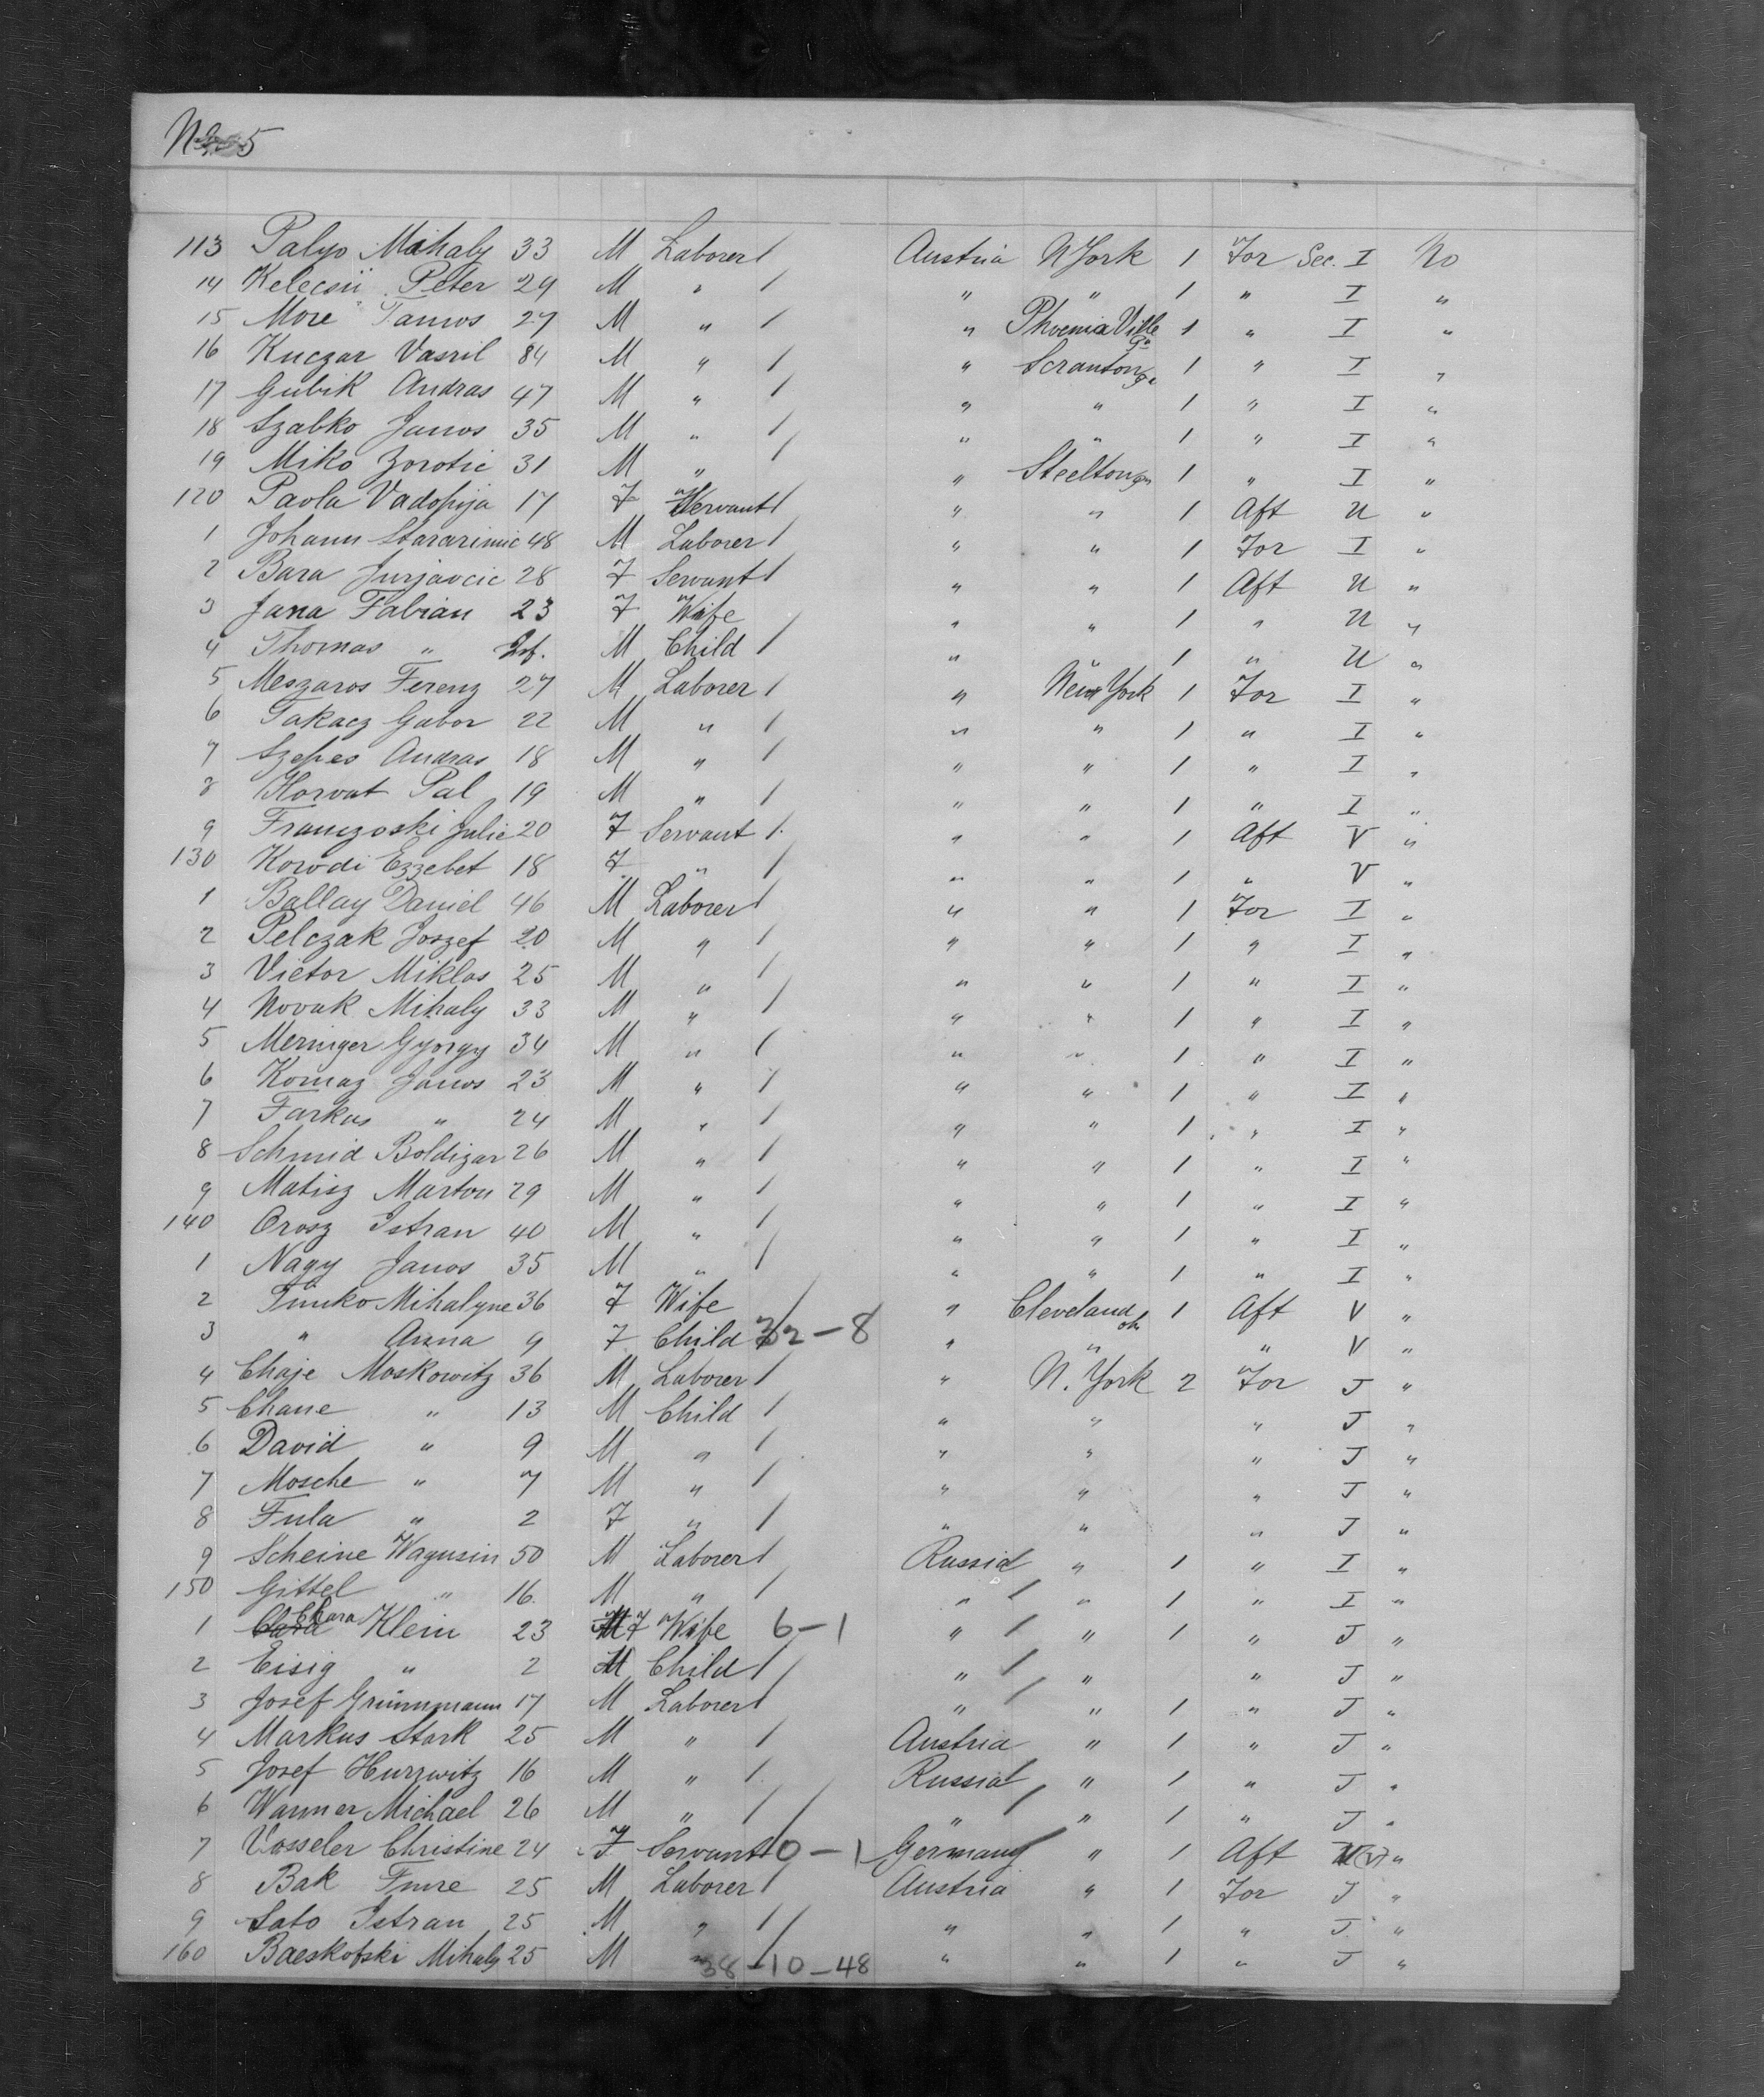 No. 5
113 Palyo Mihaly 33 M Laborer 1 Austria N York 1 For Sec. I No
14 Kelecsii Peter 29 M " 1 " " 1 " I "
15 More Tamos 27 M " 1 " PhoeniaVille Pa 1 " I "
16 Kuczar Vasril 84 M " 1 " Scranton Pa 1 " I "
17 Gubik Andras 47 M " 1 " " 1 " I "
18 Szabko Janos 35 M " 1 " " 1 " I "
19 Miko Zorotic 31 M " 1 " Steelton Pa 1 " I "
120 Paola Vadopija 17 F Servant 1 " " 1 Aft U "
1 Johann Stararinic 48 M Laborer 1 " " 1 For I "
2 Bara Jurjavcic 28 F Servant 1 " " 1 Aft U "
3 Jana Fabian 23 F Wife / " " 1 " U "
4 Thomas " Inf. M Child 1 " " 1 " U "
5 Meszaros Ferenz 27 M Laborer 1 " New York 1 For I "
6 Takacz Gabor 22 M " 1 " " 1 " I "
7 Szepes Andras 18 M " 1 " " 1 " I "
8 Horvat Pal 19 M " 1 " " 1 " I "
9 Franczoski Julie 20 F Servant 1 " " 1 Aft V "
130 Korodi Ezzebet 18 F " 1 " " 1 " V "
1 Ballay Daniel 46 M Laborer 1 " " 1 For I "
2 Pelczak Joszef 20 M " 1 " " 1 " I "
3 Victor Miklos 25 M " 1 " " 1 " I "
4 Novak Mihaly 33 M " 1 " " 1 " I "
5 Meringer Gyorgy 34 M " 1 " " 1 " I "
6 Komaz Janos 23 M " 1 " " 1 " I "
7 Farkas " 24 M " 1 " " 1 " I "
8 Schmid Boldizar 26 M " 1 " " 1 " I "
9 Matisz Marton 29 M " 1 " " 1 " I "
140 Orosz Istran 40 M " 1 " " 1 " I "
1 Nagy Janos 35 M " 1 " " 1 " I "
2 Timko Mihalyne 36 F Wife / " Cleveland oh 1 Aft V "
3 " Anna 9 F Child 32-8 " " " V "
4 Chaje Moskowitz 36 M Laborer 1 " N. York 2 For J "
5 Chane " 13 M Child 1 " " " J "
6 David " 9 M " 1 " " " J "
7 Mosche " 7 M " 1 " " " J "
8 Fula " 2 F " 1 " " " J "
9 Scheine Wagusin 50 M Laborer 1 Russia " 1 " I "
150 Gittel " 16 M " 1 " " 1 " I "
1 Chara Klein 23 F Wife 6-1 " " 1 " J "
2 Eisig " 2 M Child 1 " " " J "
3 Josef Grünnmann 17 M Laborer 1 " " 1 " J "
4 Markus Stark 25 M " 1 Austria " 1 " J "
5 Josef Hurrwitz 16 M " 1 Russia " 1 " J "
6 Wanner Michael 26 M " 1 " " 1 " J "
7 Vosseler Christine 24 F Servant 0-1 Germany " 1 Aft (V) "
8 Bak Imre 25 M Laborer 1 Austria " 1 For J "
9 Sato Istran 25 M " 1 " " 1 " J "
160 Baeskofski Mihaly 25 M " 1 " " 1 " J "
38-10-48